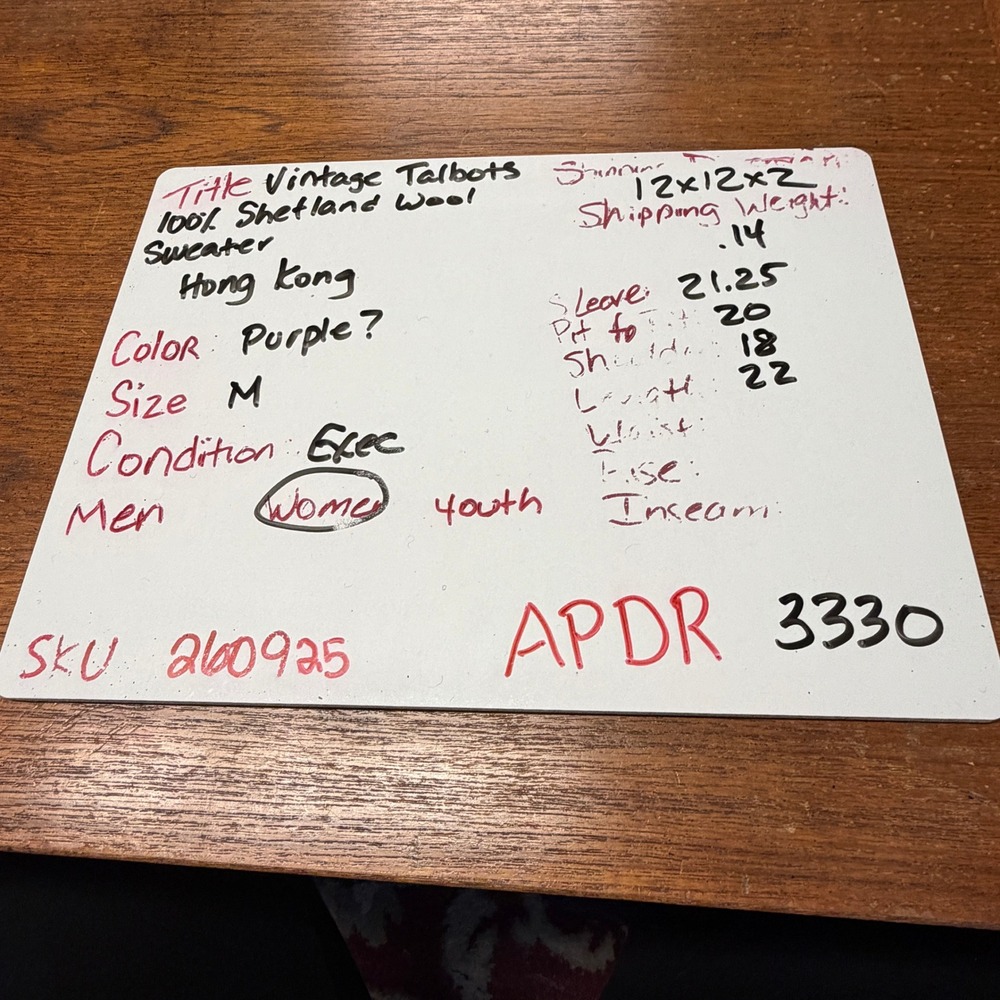 Title Vintage Talbots
100% Shetland Wool
Sweater
Hong Kong
Color: Purple?
Size M
Condition: Exec
Men Women Youth
SKU 260925
12x12x2
Shipping Weight:
.14
Sleeve: 21.25
Pit to 20
18
22
Waist:
Rise:
Inseam:
APDR 3330